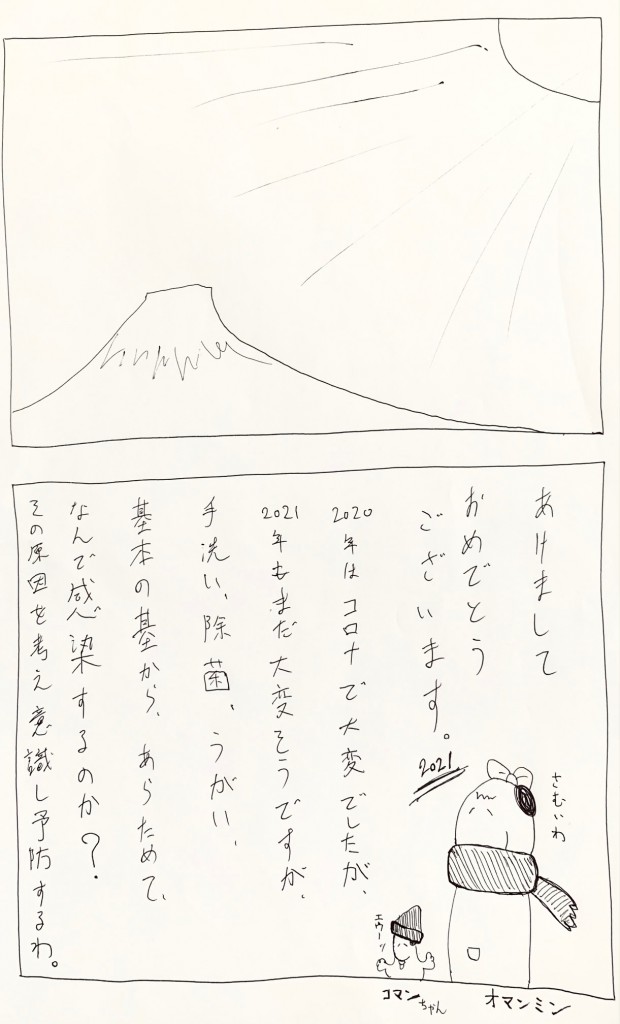 あけまして
おめでとう
ございます。
2020年はコロナで大変でしたが、
2021年もまだ大変そうですが、
手洗い、除菌、うがい、
基本の基から、あらためて、
なんで感染するのか？
その原因を考え意識し予防するわ。
2021
さむいわ
エウーッ
コマンちゃん
オマンミン